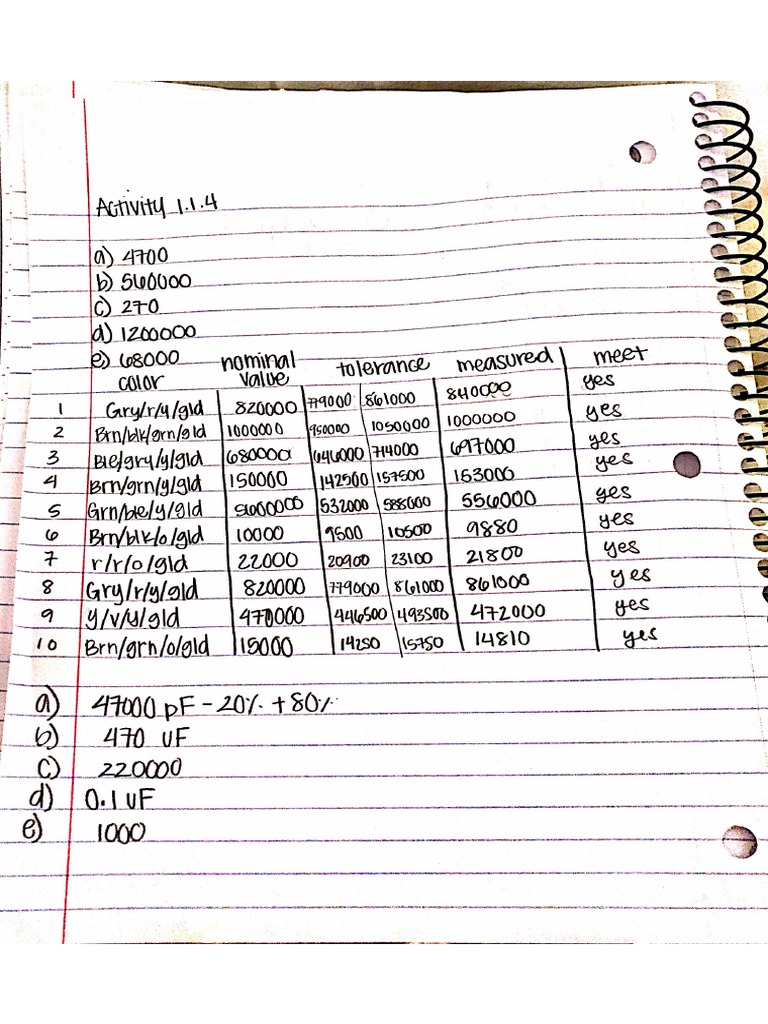 Activity 1.1.4
a) 4700
b) 560000
c) 270
d) 1200000
e) 68000
color nominal value tolerance measured meet
1 Gry/r/y/gld 820000 779000 861000 840000 yes
2 Brn/blk/grn/gld 1000000 950000 1050000 1000000 yes
3 Ble/gry/y/gld 680000 646000 714000 697000 yes
4 Brn/grn/y/gld 150000 142500 157500 153000 yes
5 Grn/ble/y/gld 532000 588000 556000 yes
6 Brn/blk/o/gld 10000 9500 10500 9880 yes
7 r/r/o/gld 22000 20900 23100 21800 yes
8 Gry/r/y/gld 820000 779000 861000 861000 yes
9 y/v/y/gld 470000 446500 493500 472000 yes
10 Brn/grn/o/gld 15000 14250 15750 14810 yes
a) 47000 pF -20% +80%
b) 470 UF
c) 220000
d) 0.1 UF
e) 1000